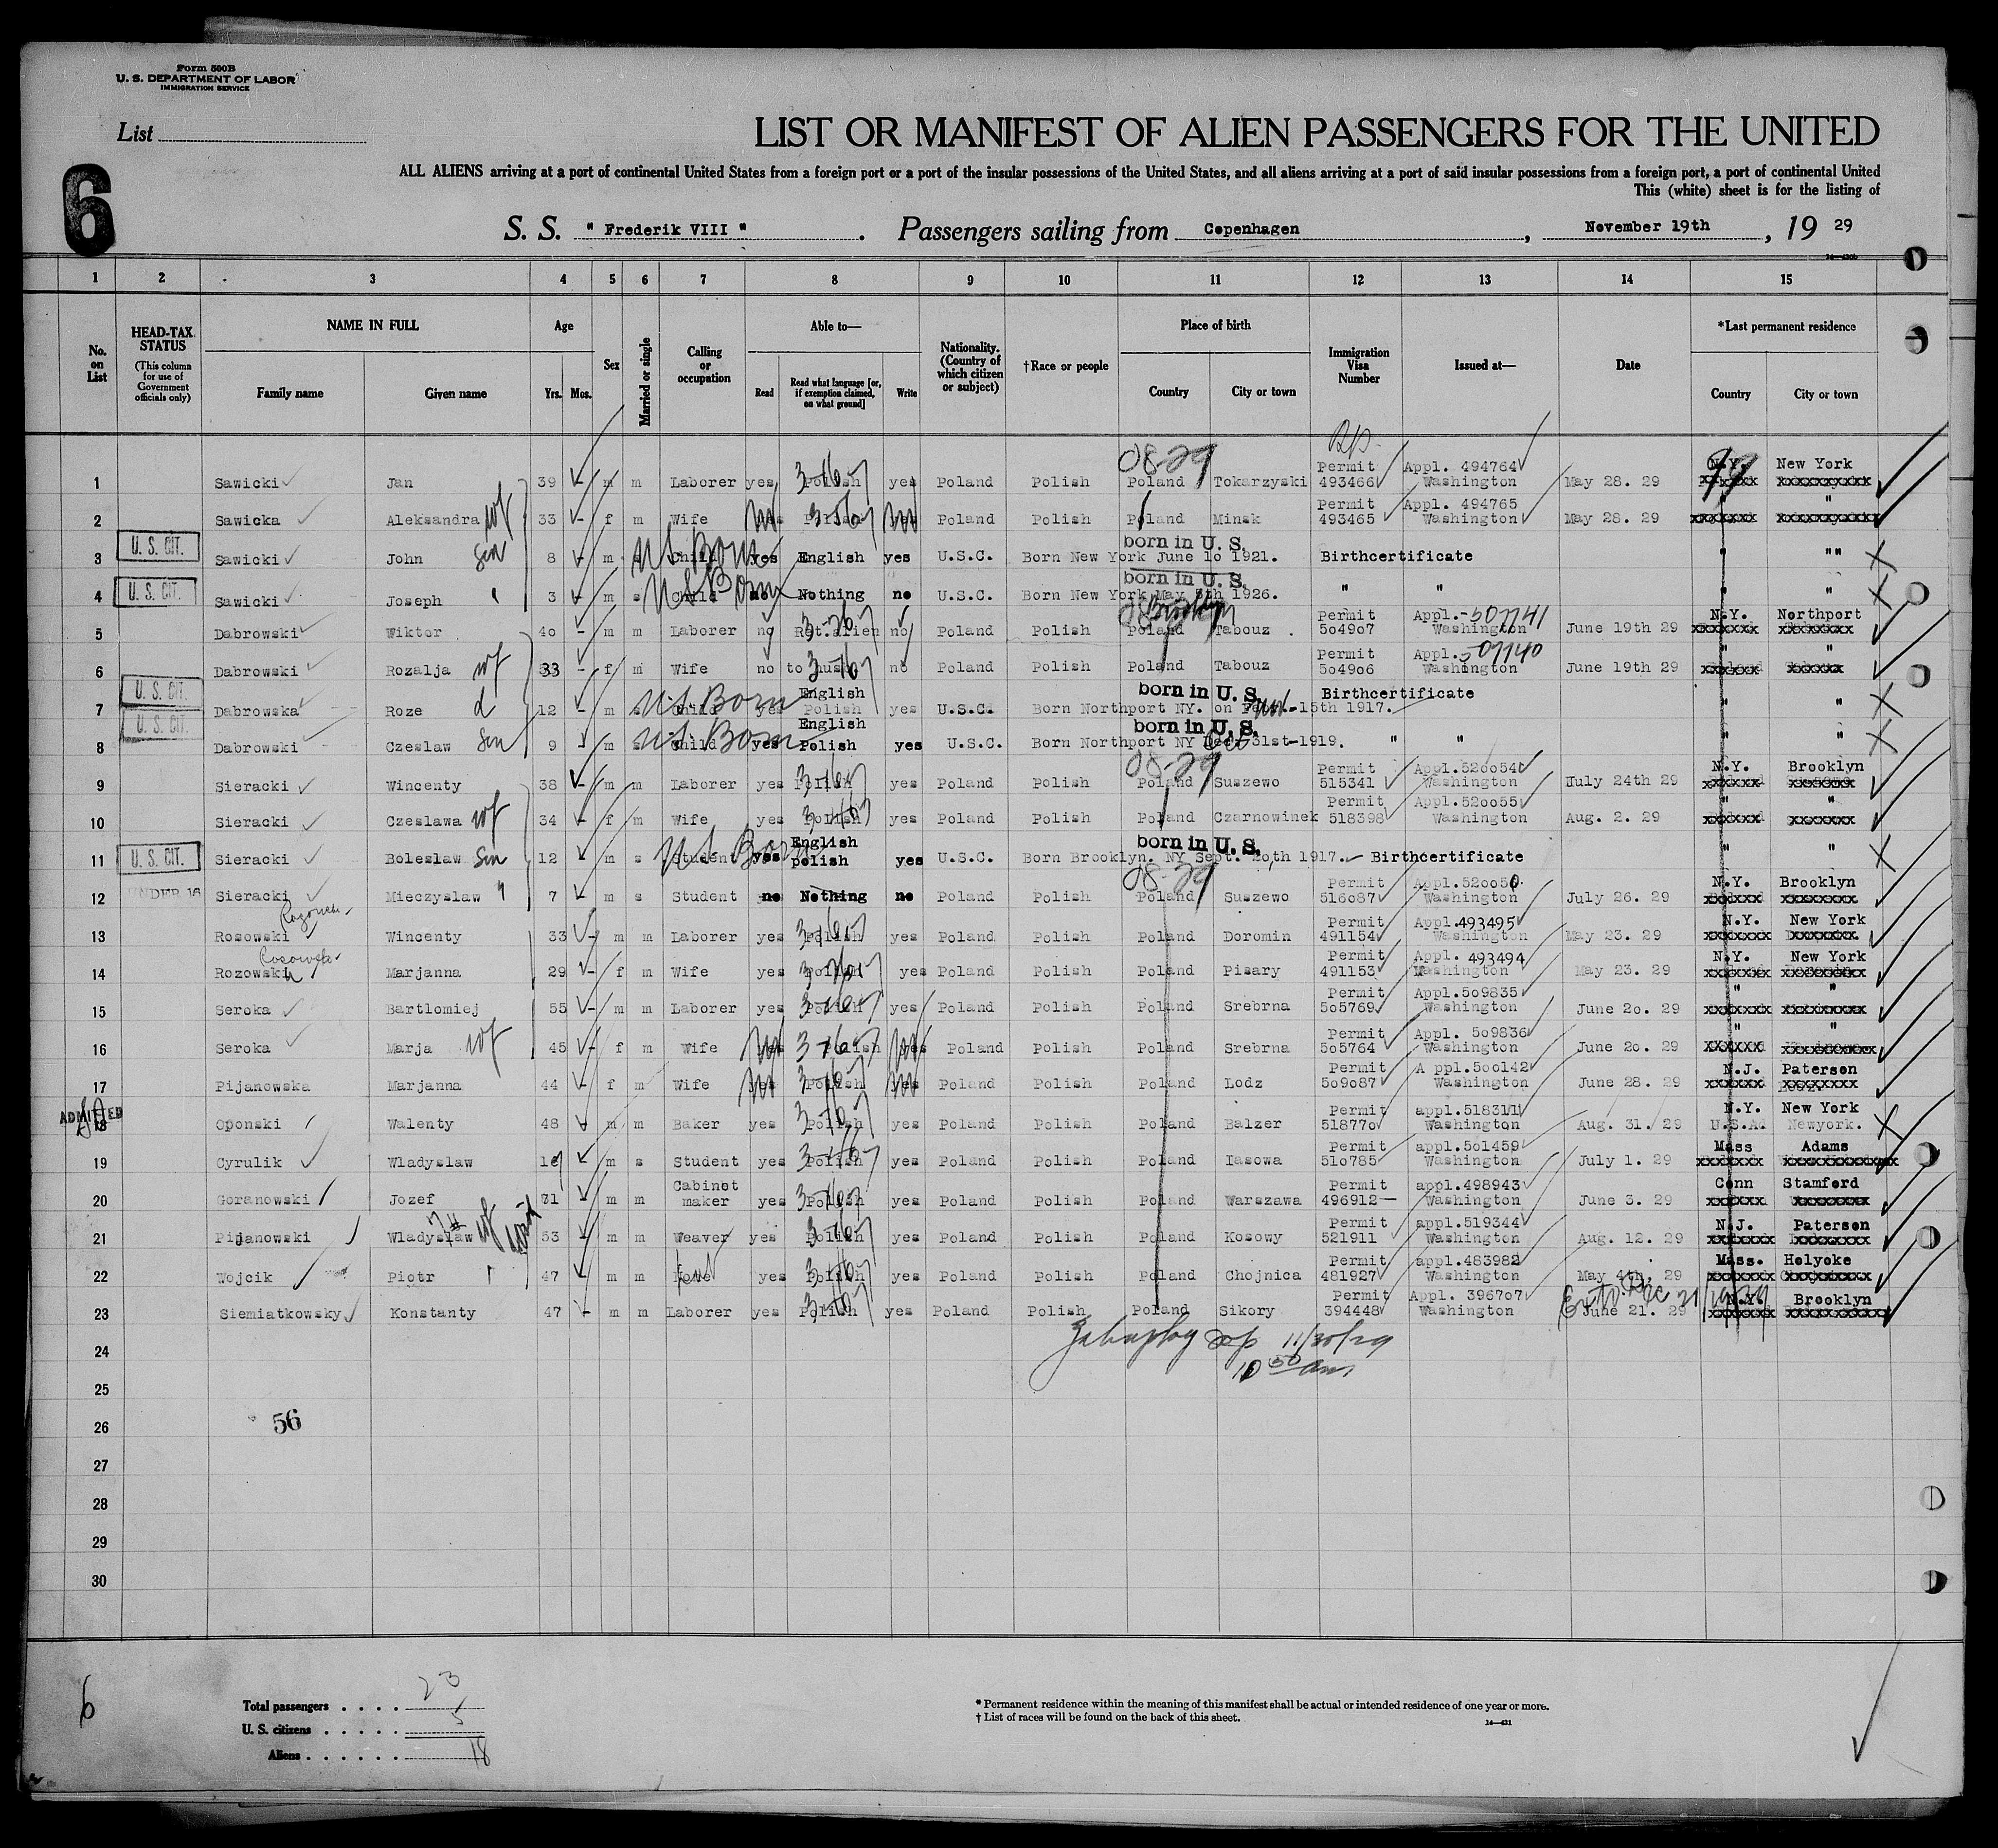 Form 500B
U. S. DEPARTMENT OF LABOR
IMMIGRATION SERVICE
List
6
LIST OR MANIFEST OF ALIEN PASSENGERS FOR THE UNITED
ALL ALIENS arriving at a port of continental United States from a foreign port or a port of the insular possessions of the United States, and all aliens arriving at a port of said insular possessions from a foreign port, a port of continental United
This (white) sheet is for the listing of
S. S. " Frederik VIII " . Passengers sailing from Copenhagen , November 19th , 19 29
1 2 3 4 5 6 7 8 9 10 11 12 13 14 15
No. on List
HEAD-TAX STATUS (This column for use of Government officials only)
NAME IN FULL Family name Given name
Age Yrs. Mos.
Sex
Married or single
Calling or occupation
Able to— Read Read what language [or, if exemption claimed, on what ground] Write
Nationality. (Country of which citizen or subject)
†Race or people
Place of birth Country City or town
Immigration Visa Number
Issued at—
Date
*Last permanent residence Country City or town
1 Sawicki Jan 39 - m m Laborer yes Polish yes Poland Polish Poland Tokarzyski Permit 493466 Appl. 494764 Washington May 28. 29 N.Y. New York
2 Sawicka Aleksandra wf 33 - f m Wife Polish Poland Polish Poland Minsk Permit 493465 Appl. 494765 Washington May 28. 29 " "
3 U. S. CIT. Sawicki John son 8 - m s Child US Born yes English yes U.S.C. born in U. S. Born New York June 10 1921. Birthcertificate " "
4 U. S. CIT. Sawicki Joseph " 3 - m s Child US Born no Nothing no U.S.C. born in U. S. Born New York May 5th 1926. " " " "
5 Dabrowski Wiktor 40 - m m Laborer no Ret.alien no Poland Polish Poland Tabouz . Permit 504907 Appl.-507741 Washington June 19th 29 N.Y. Northport
6 Dabrowski Rozalja wf 33 - f m Wife no to husb no Poland Polish Poland Tabouz Permit 504906 Appl.507740 Washington June 19th 29 " "
7 U. S. CIT. Dabrowska Roze d 12 - m s Child US Born yes English Polish yes U.S.C. born in U. S. Born Northport NY. on -15th 1917. Birthcertificate " "
8 U. S. CIT. Dabrowski Czeslaw son 9 - m s Child US Born yes English Polish yes U.S.C. born in U. S. Born Northport NY Oct 31st-1919. " " " "
9 Sieracki Wincenty 38 - m m Laborer yes Polish yes Poland Polish Poland Suszewo Permit 515341 Appl.520054 Washington July 24th 29 N.Y. Brooklyn
10 Sieracki Czeslawa wf 34 - f m Wife yes Polish yes Poland Polish Poland Czarnowinek Permit 518398 Appl.520055 Washington Aug. 2. 29 " "
11 U. S. CIT. Sieracki Boleslaw son 12 - m s Student US Born yes English polish yes U.S.C. born in U. S. Born Brooklyn. NY Sept. 20,th 1917. - Birthcertificate " "
12 UNDER 16 Sieracki Mieczyslaw " 7 - m s Student no Nothing no Poland Polish Poland Suszewo Permit 516087 Appl.520050 Washington July 26. 29 N.Y. Brooklyn
13 Rosowski Wincenty 33 - m m Laborer yes Polish yes Poland Polish Poland Doromin Permit 491154 Appl.493495 Washington May 23. 29 N.Y. New York
14 Rozowski Marjanna 29 - f m Wife yes Polish yes Poland Polish Poland Pisary Permit 491153 Appl. 493494 Washington May 23. 29 N.Y. New York
15 Seroka Bartlomiej 55 - m m Laborer yes Polish yes Poland Polish Poland Srebrna Permit 505769 Appl.509835 Washington June 20. 29 " "
16 Seroka Marja wf 45 - f m Wife Polish yes Poland Polish Poland Srebrna Permit 505764 Appl. 509836 Washington June 20. 29 " "
17 Pijanowska Marjanna 44 - f m Wife yes Polish yes Poland Polish Poland Lodz Permit 509087 A ppl.500142 Washington June 28. 29 N.J. Paterson
ADMITTED
18 Oponski Walenty 48 - m m Baker yes Polish yes Poland Polish Poland Balzer Permit 518770 appl.518311 Washington Aug. 31. 29 N.Y. New York U.S.A. Newyork.
19 Cyrulik Wladyslaw - m s Student yes Polish yes Poland Polish Poland Iasowa Permit 510785 appl.501459 Washington July 1. 29 Mass Adams
20 Goranowski Jozef 31 - m m Cabinet maker yes Polish yes Poland Polish Poland Warszawa Permit 496912 appl.498943 Washington June 3. 29 Conn Stamford
21 Pijanowski Wladyslaw 53 - m m Weaver yes Polish yes Poland Polish Poland Kosowy Permit 521911 appl.519344 Washington Aug. 12. 29 N.J. Paterson
22 Wojcik Piotr 47 - m m None yes Polish yes Poland Polish Poland Chojnica Permit 481927 appl.483982 Washington May 4th. 29 Mass. Holyoke
23 Siemiatkowsky Konstanty 47 - m m Laborer yes Polish yes Poland Polish Poland Sikory Permit 394448 Appl. 396707 Washington June 21. 29 N.Y. Brooklyn
24 11/30/29
25 10 50 am
26 56
27
28
29
30
6
Total passengers . . . . 23
U. S. citizens . . . . . 5
Aliens . . . . . . 18
* Permanent residence within the meaning of this manifest shall be actual or intended residence of one year or more.
† List of races will be found on the back of this sheet.
14—431